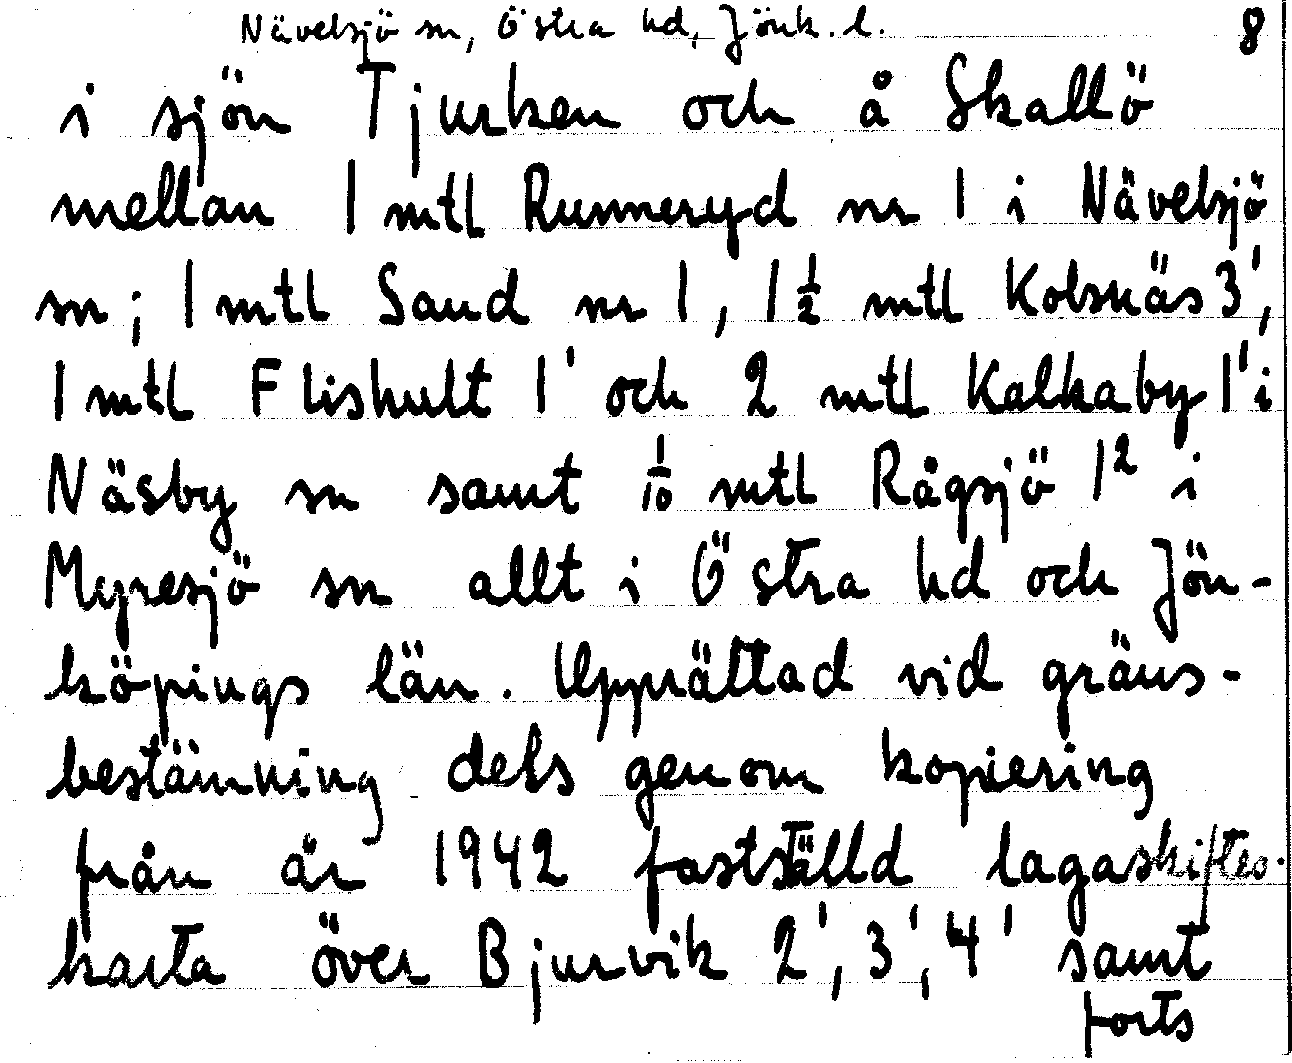 Nävelsjö sn, Östra hd, Jönk. l. 8
i sjön Tjurken och å Skallö
mellan 1 mtl Runneryd nr 1 i Nävelsjö
sn; 1 mtl Sand nr 1, 1 1/2 mtl Kolsnäs 3¹,
1 mtl Flishult 1¹ och 2 mtl Kalkaby 1¹ i
Näsby sn samt 1/10 mtl Rågsjö 1² i
Myresjö sn allt i Östra hd och Jön-
köpings län. Upprättad vid gräns-
bestämning dels genom kopiering
från år 1942 fastställd lagaskiftes-
karta över Bjurvik 2¹, 3¹, 4¹ samt
forts